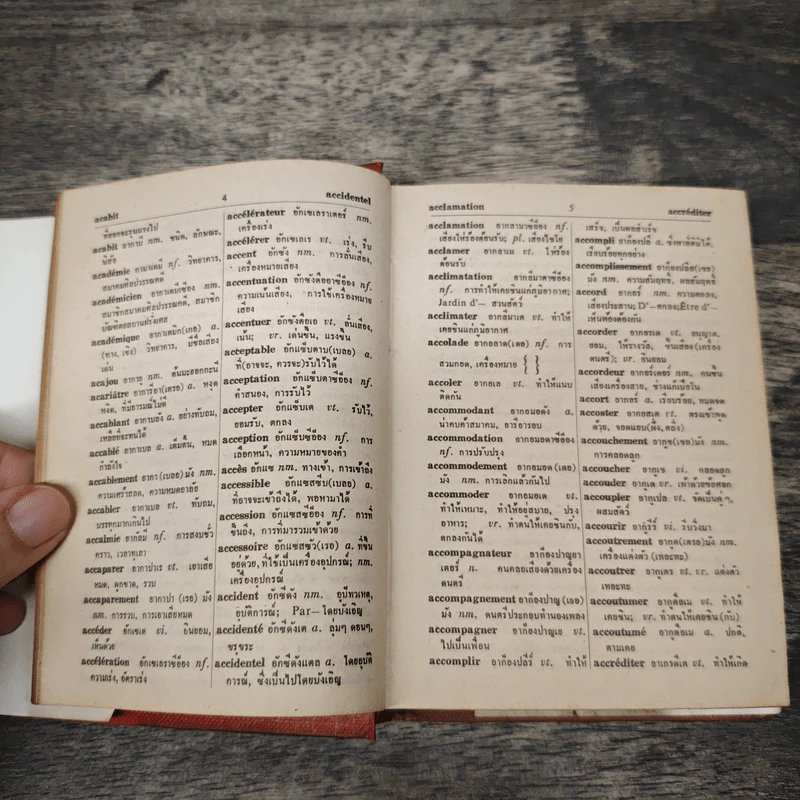 acabit 4 accidentel
ที่ออกจะรุนแรงไป
acabit อากาบี nm. ชนิด, ลักษณะ,
นิสัย
académie อากาเดมี nf. วิทยาคาร,
สมาคมศิลปวรรณคดี
académicien อากาเดมีซีออง nm.
สมาชิกสมาคมศิลปวรรณคดี, สมาชิก
บัณฑิตยสถานฝรั่งเศส
académique อากาเดมิก(เกอ) a.
(ทาง, เชิง) วิทยาคาร, มีชื่อเสียง
เด่น
acajou อากาชู nm. ต้นมะฮอกกะนี
acariâtre อาการีอา(เตรอ) a. หงุด
หงิด, ที่มีอารมณ์ไม่ดี
accablant อากาบลัง a. อย่างทับถม,
เหลือที่จะทนได้
accablé อากาเบล a. เต็มตื้น, หมด
กำลังใจ
accablement อากา(เบลอ)มัง nm.
ความเศร้าสลด, ความหมดอาลัย
accabler อากาเบล vt. ทับถม,
บรรทุกมากเกินไป
accalmie อากัลมี nf. การสงบชั่ว
คราว, เวลาหูเลา
accaparer อากาปาเร vt. เอาเสีย
หมด, ผูกขาด, รวบ
accaparement อากาปา (เรอ) มัง
nm. การรวบ, การเอาเสียหมด
accéder อักเซเด vi. ยินยอม,
เห็นด้วย
accélération อักเซเลราซีออง nf.
ความเร่ง, อัตราเร่ง
accélérateur อักเซเลราเตอร์ nm.
เครื่องเร่ง
accélérer อักเซเลเร vt. เร่ง, รีบ
accent อักซัง nm. การลั่นเสียง,
เครื่องหมายเสียง
accentuation อักซังตืออาซีออง nf.
ความเน้นเสียง, การใช้เครื่องหมาย
เสียง
accentuer อักซังตือเอ vt. ลั่นเสียง,
เน้น; vr. เด่นขึ้น, แรงขึ้น
acceptable อักเซ็บตาบ(เบลอ) a.
ที่(อาจจะ, ควรจะ)รับไว้ได้
acceptation อักเซ็บตาซีออง nf.
คำสนอง, การรับไว้
accepter อักเซ็บเต vt. รับไว้,
ยอมรับ, ตกลง
acception อักเซ็บซีออง nf. การ
เลือกหน้า, ความหมายของคำ
accès อักแซ nm. ทางเข้า, การเข้าถึง
accessible อักแซสซีบ(เบลอ) a.
ที่อาจจะเข้าถึงได้, พอหามาได้
accession อักเซสซีออง nf. การที่
ขึ้นถึง, การที่มารวมเข้าด้วย
accessoire อักแซสซัว(เรอ) a. ที่ขึ้น
อยู่ด้วย, ที่ใช้เป็นเครื่องอุปกรณ์; nm.
เครื่องอุปกรณ์
accident อักซีดัง nm. อุปัทวเหตุ,
อุบัติการณ์; Par— โดยบังเอิญ
accidenté อักซีดังเต a. ลุ่มๆ ดอนๆ,
ขรุขระ
accidentel อักซีดังแตล a. โดยอุบัติ
การณ์, ซึ่งเป็นไปโดยบังเอิญ
acclamation 5 accréditer
acclamation อากลามาซีออง nf.
เสียงโห่ร้องต้อนรับ; pl. เสียงไชโย
acclamer อากลาเม vt. โห่ร้อง
ต้อนรับ
acclimatation อากลีมาตาซีออง
nf. การทำให้เคยชินแก่ภูมิอากาศ;
Jardin d'— สวนสัตว์
acclimater อากลีมาเต vt. ทำให้
เคยชินแก่ภูมิอากาศ
accolade อากอลาด(เดอ) nf. การ
สวมกอด, เครื่องหมาย { }
accoler อากอเล vt. ทำให้แนบ
ติดกัน
accommodant อากอมอดัง a.
น่าคบค้าสมาคม, อารีอารอบ
accommodation อากอมอดาซีออง
nf. การปรับปรุง
accommodement อากอมอด(เดอ)
มัง nm. การเลิกแล้วกันไป
accommoder อากอมอเด vt.
ทำให้เหมาะ, ทำให้อยู่สบาย, ปรุง
อาหาร; vr. ทำตนให้เคยชินกับ,
ตกลงกันได้
accompagnateur อาก็องปาญาเ
ตอร์ n. คนคลอเสียงด้วยเครื่อง
ดนตรี
accompagnement อาก็องปาญ (เญอ)
มัง nm. ดนตรีประกอบทำนองเพลง
accompagner อาก็องปาญเ vt.
ไปเป็นเพื่อน
accomplir อาก็องปลีร์ vt. ทำให้
เสร็จ, เป็นผลสำเร็จ
accompli อาก็องปลี a. ซึ่งหาที่ติมิได้,
เรียบร้อยทุกอย่าง
accomplissement อาก็องปลีส(เซอ)
มัง nm. ความสัมฤทธิ์, ผลสัมฤทธิ์
accord อากอร์ nm. ความตกลง,
เสียงประสาน; D'— ตกลง; Être d'—
เห็นพ้องต้องกัน
accorder อากอรเด vt. อนุญาต,
ยอม, ให้รางวัล, ขึ้นเสียง(เครื่อง
ดนตรี); vr. ยินยอม
accordeur อากอร์เดอร์ nm. คนขึ้น
เสียงเครื่องสาย, ช่างแก้เปียโน
accort อากอร์ a. เรียบร้อย, หมดจด
accoster อากอสเต vt. ตรงเข้าพูด
ด้วย, จอดแอบ(ฝั่ง, ตลิ่ง)
accouchement อากูช(เชอ)มัง nm.
การคลอดลูก
accoucher อากูเช vt. คลอดลูก
accouder อากูเด vr. เท้าด้วยข้อศอก
accoupler อากูเปล vt. จัดเป็นคู่ๆ,
ผสมสัตว์
accourir อากูรีร์ vi. รีบวิ่งมา
accoutrement อากูต(เตรอ)มัง nm.
เครื่องแต่งตัว (เทอะทะ)
accoutrer อากูเตร vt. vr. แต่งตัว
เทอะทะ
accoutumer อากูตือเม vt. ทำให้
เคยชิน; vr. ทำตนให้เคยชิน(กับ)
accoutumé อากูตือเม a. ปกติ,
ตามเคย
accréditer อาเกรดีเต vt. ทำให้เกิด